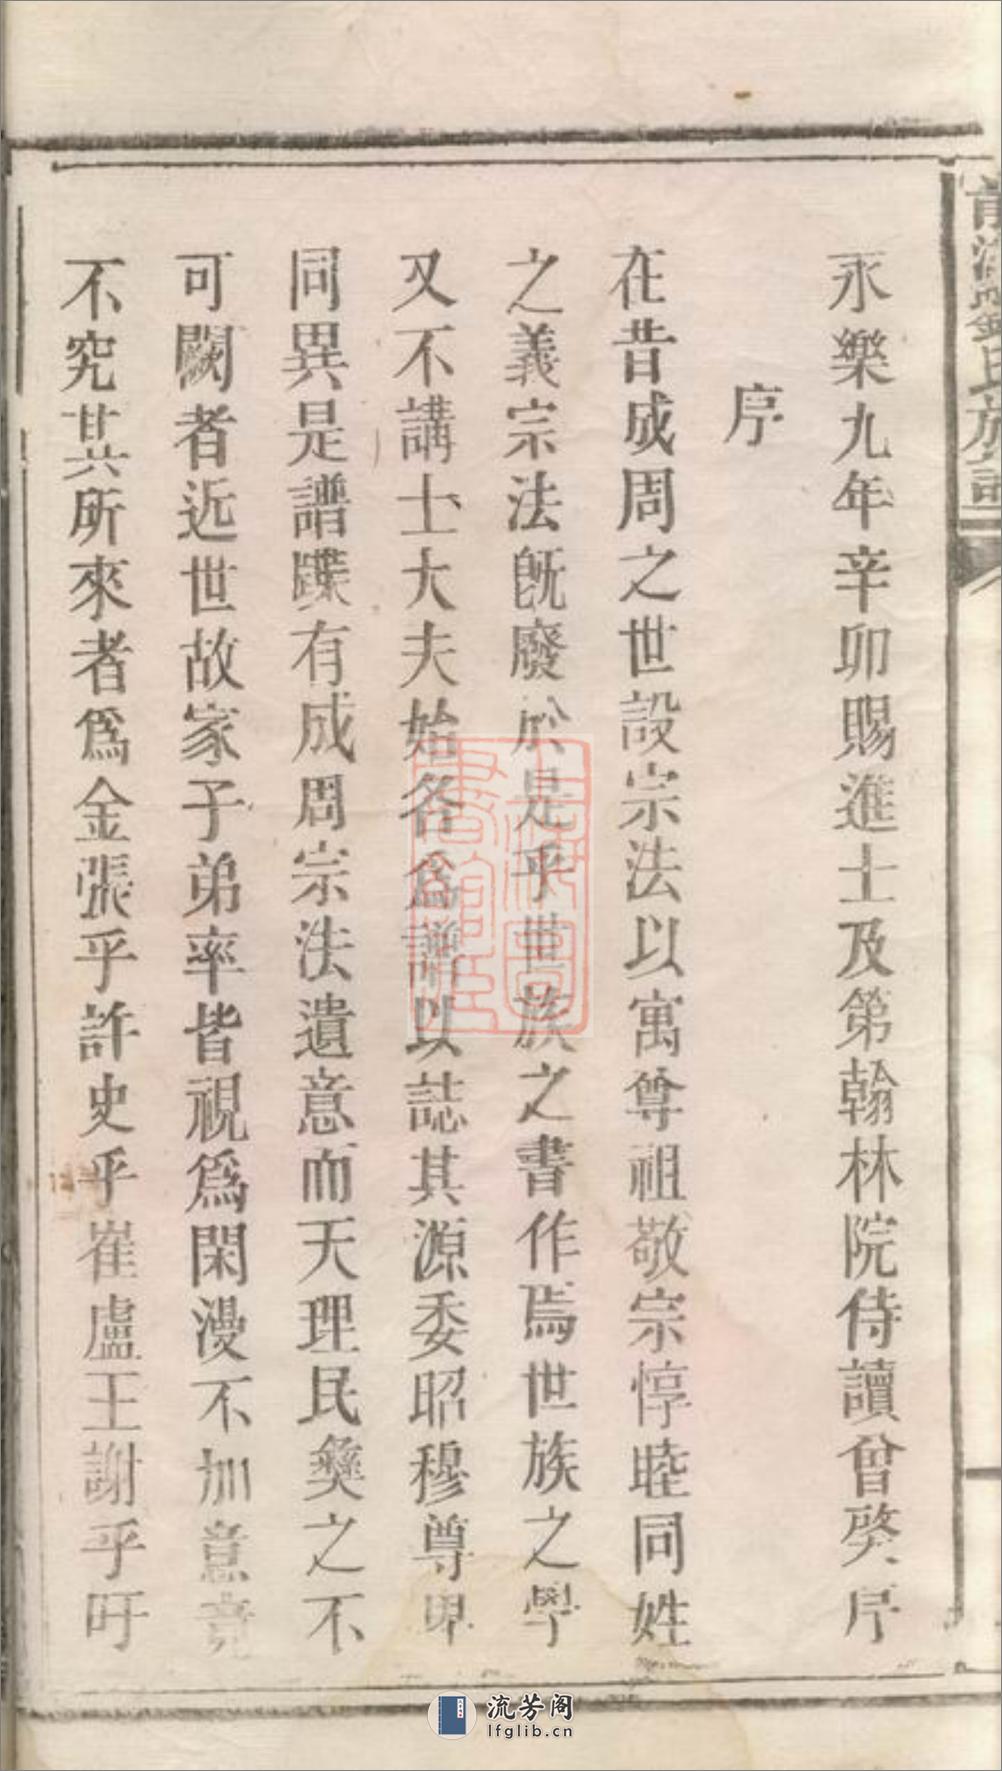 永樂九年辛卯賜進士及第翰林院侍讀曾棨序
序
在昔成周之世設宗法以寓尊祖敬宗惇睦同姓
之義宗法旣廢於是乎世族之書作焉世族之學
又不講士大夫始各爲譜以誌其源委昭穆尊卑
同異是譜牒有成周宗法遺意而天理民彝之不
可闕者近世故家子弟率皆視爲閑漫不加意竟
不究其所來者爲金張乎許史乎崔盧王謝乎吁
氏族譜
流芳阁
lfglib.cn